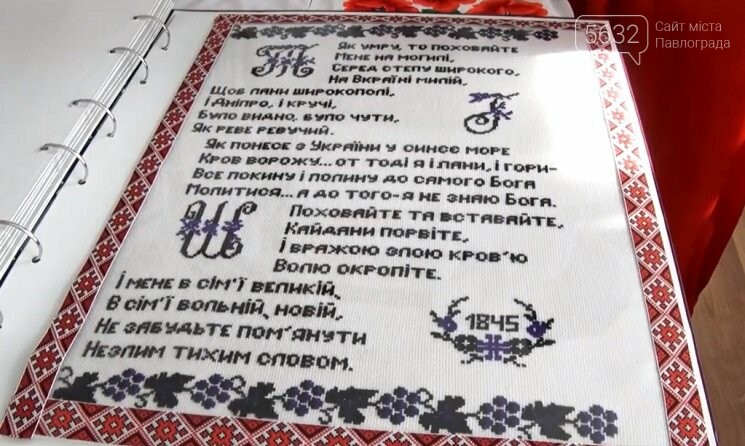 5632
Сайт міста
Павлограда
Т
Як умру, то поховайте
Мене на могилі,
Серед степу широкого,
На Вкраїні милій,
Щоб лани широкополі,
і Дніпро, і кручі,
Було видно, було чути,
Як реве ревучий.
Г
Як понесе з України у синєє море
Кров ворожу... от тоді я і лани, і гори-
Все покину і полину до самого Бога
Молитися... а до того-я не знаю Бога.
Ш
Поховайте та вставайте,
Кайдани порвіте,
І вражою злою кров'ю
Волю окропіте.
І мене в сім'ї великій,
В сім'ї вольній, новій,
Не забудьте пом'янути
Незлим тихим словом.
1845